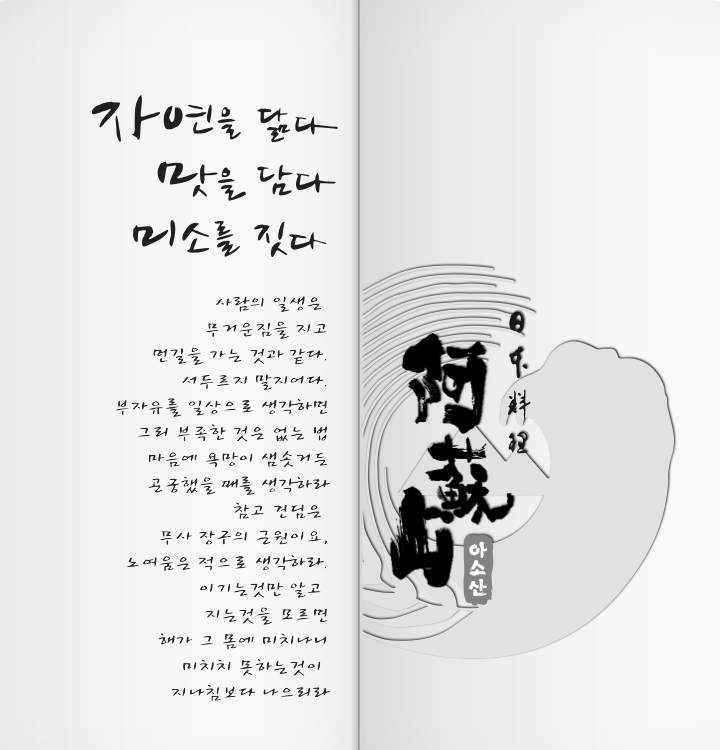 자연을 닮다
맛을 담다
미소를 짓다
사람의 일생은
무거운짐을 지고
먼길을 가는 것과 같다.
서두르지 말지어다.
부자유를 일상으로 생각하면
그리 부족한 것은 없는 법
마음에 욕망이 샘솟거든
곤궁했을 때를 생각하라
참고 견딤은
무사 장구의 근원이요,
노여움은 적으로 생각하라.
이기는것만 알고
지는것을 모르면
해가 그 몸에 미치나니
미치치 못하는것이
지나침보다 나으리라
日本料理
阿蘇山
아소산